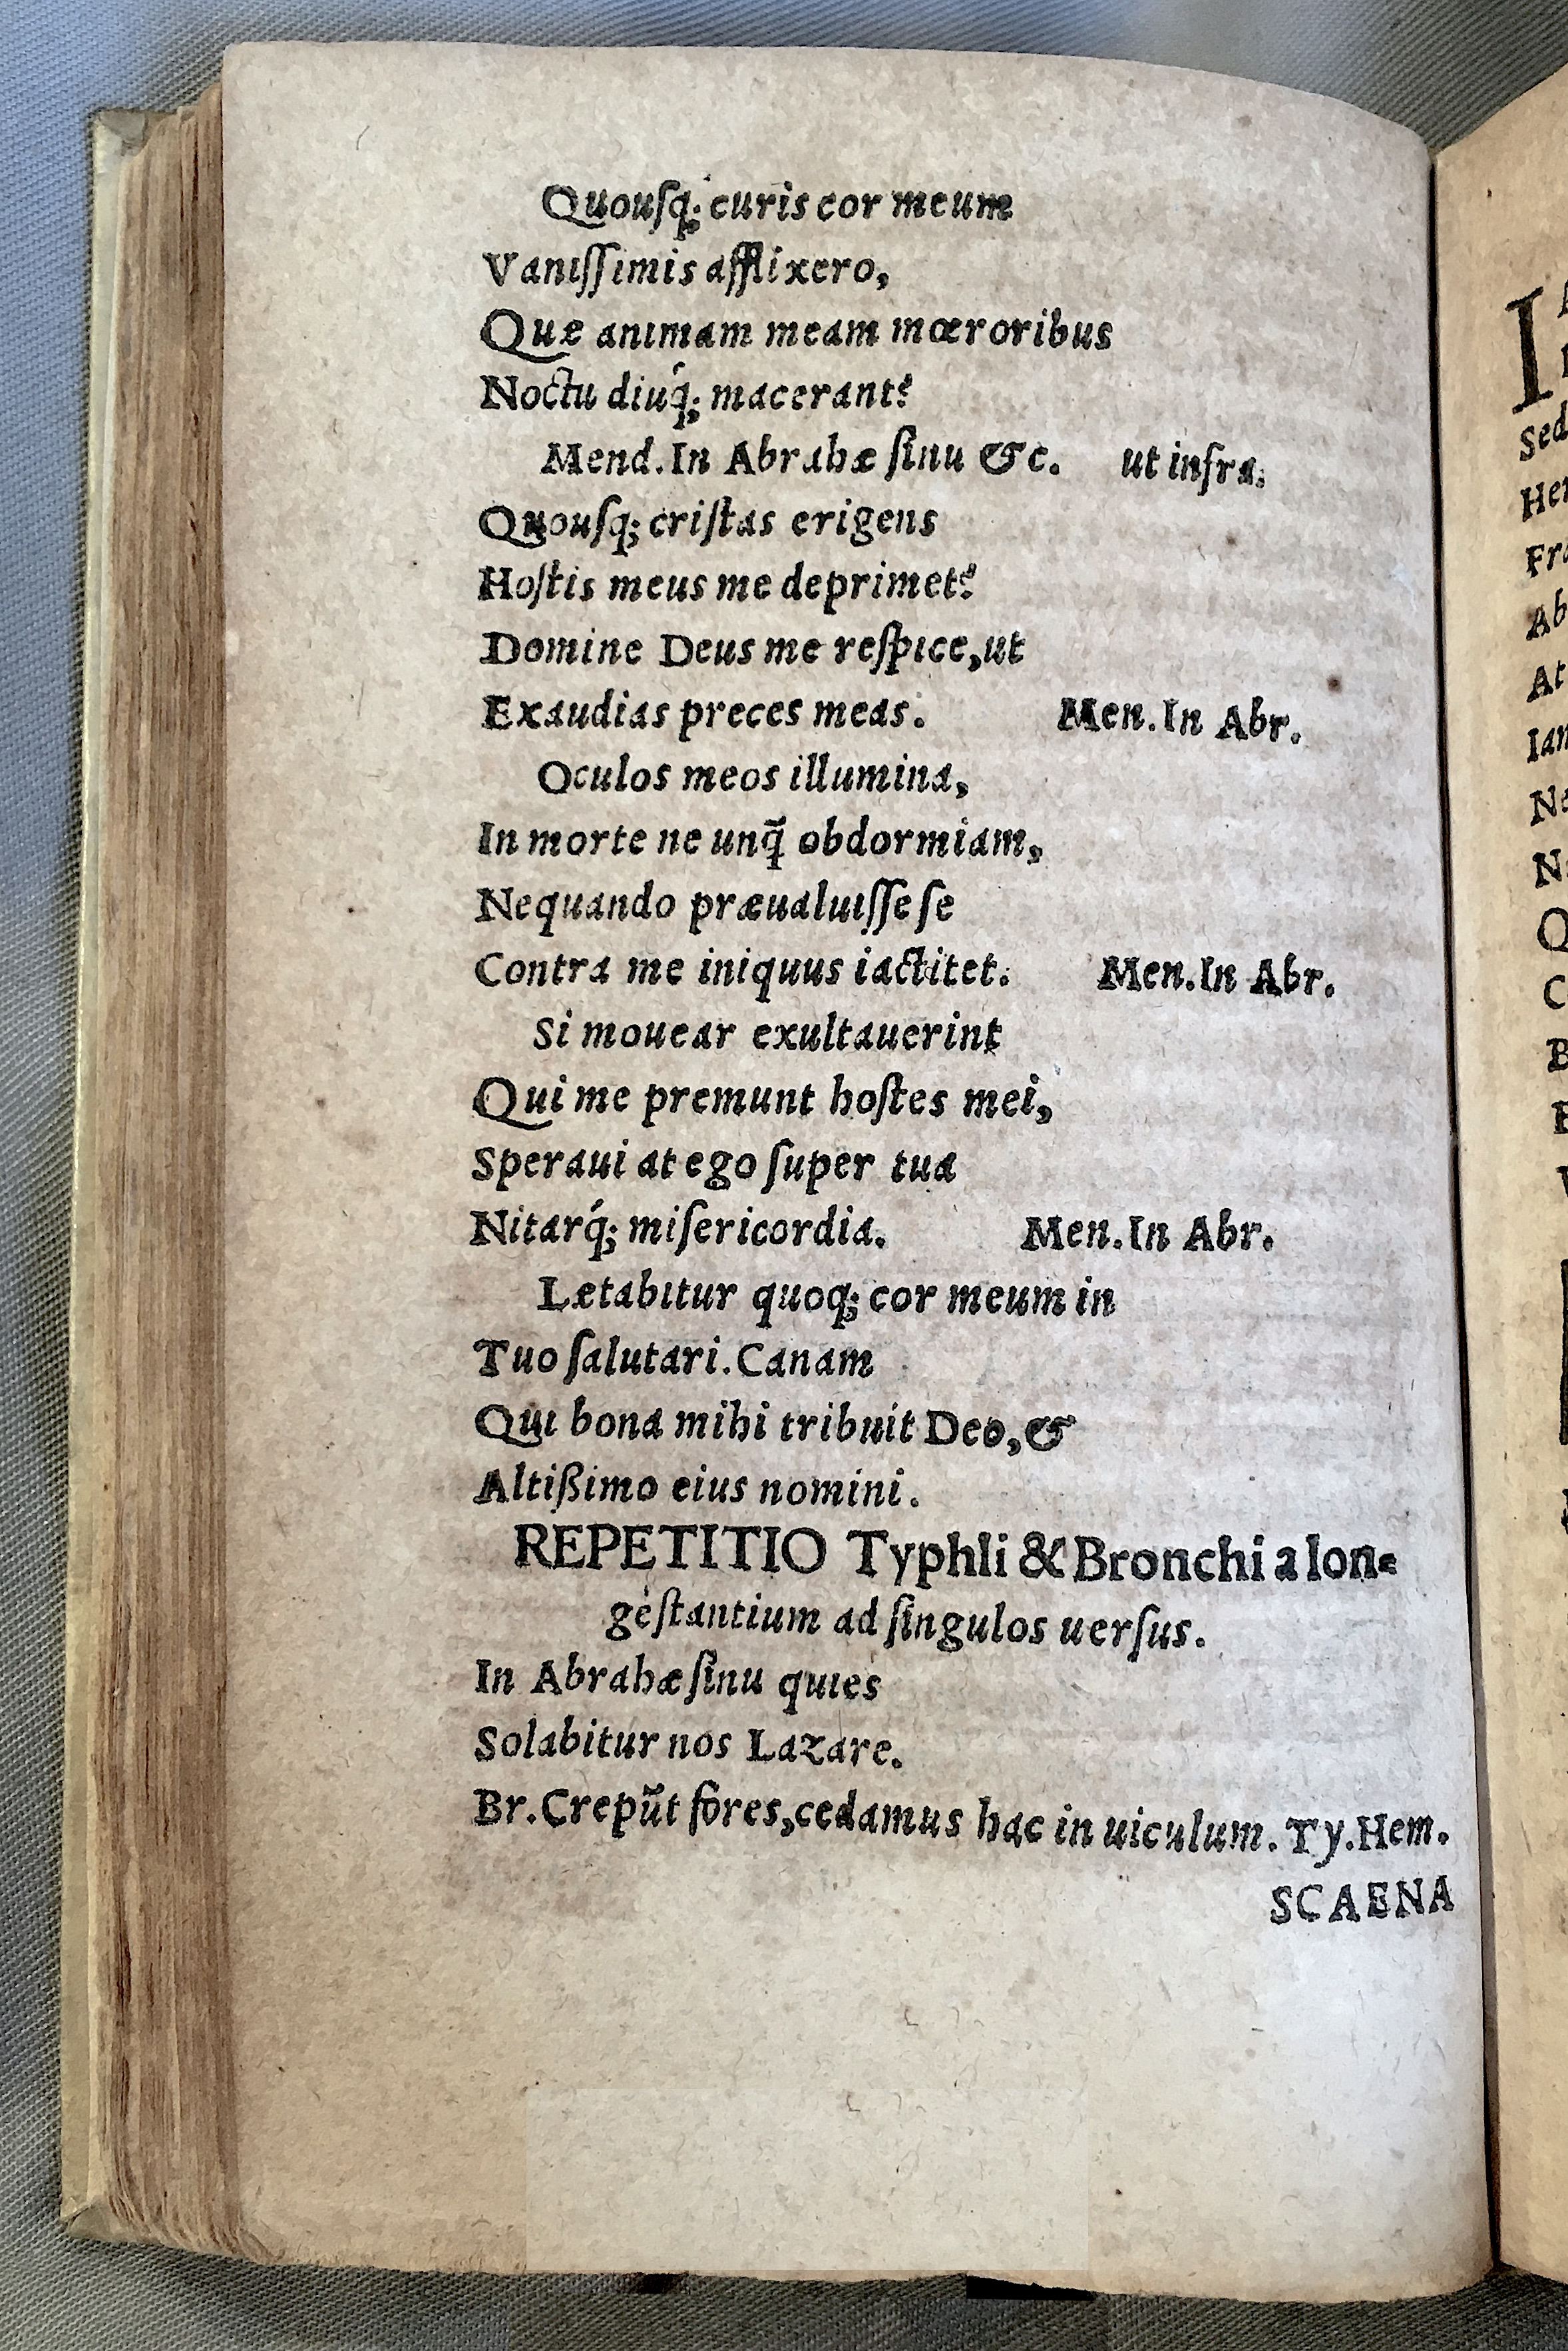 Quouſq; curis cor meum
Vaniſſimis afflixero,
Quæ animam meam mœroribus
Noctu diuq́; macerant?
Mend. In Abrahæ ſinu &c. ut infra.
Quouſq; criſtas erigens
Hoſtis meus me deprimet?
Domine Deus me reſpice, ut
Exaudias preces meas. Men. In Abr.
Oculos meos illumina,
In morte ne unq̃ obdormiam,
Nequando præualuiſſe ſe
Contra me iniquus iactitet. Men. In Abr.
Si mouear exultauerint
Qui me premunt hoſtes mei,
Speraui at ego ſuper tua
Nitarq́; miſericordia. Men. In Abr.
Lætabitur quoq; cor meum in
Tuo ſalutari. Canam
Qui bona mihi tribuit Deo, &
Altißimo eius nomini.
REPETITIO Typhli & Bronchi a lon=
gè ſtantium ad ſingulos uerſus.
In Abrahæ ſinu quies
Solabitur nos Lazare.
Br. Crepũt fores, cedamus hac in uiculum. Ty. Hem.
SCAENA
I
Sed
Her
Fra
Ab
At
Ian
Ne
N
Q
C
B
E